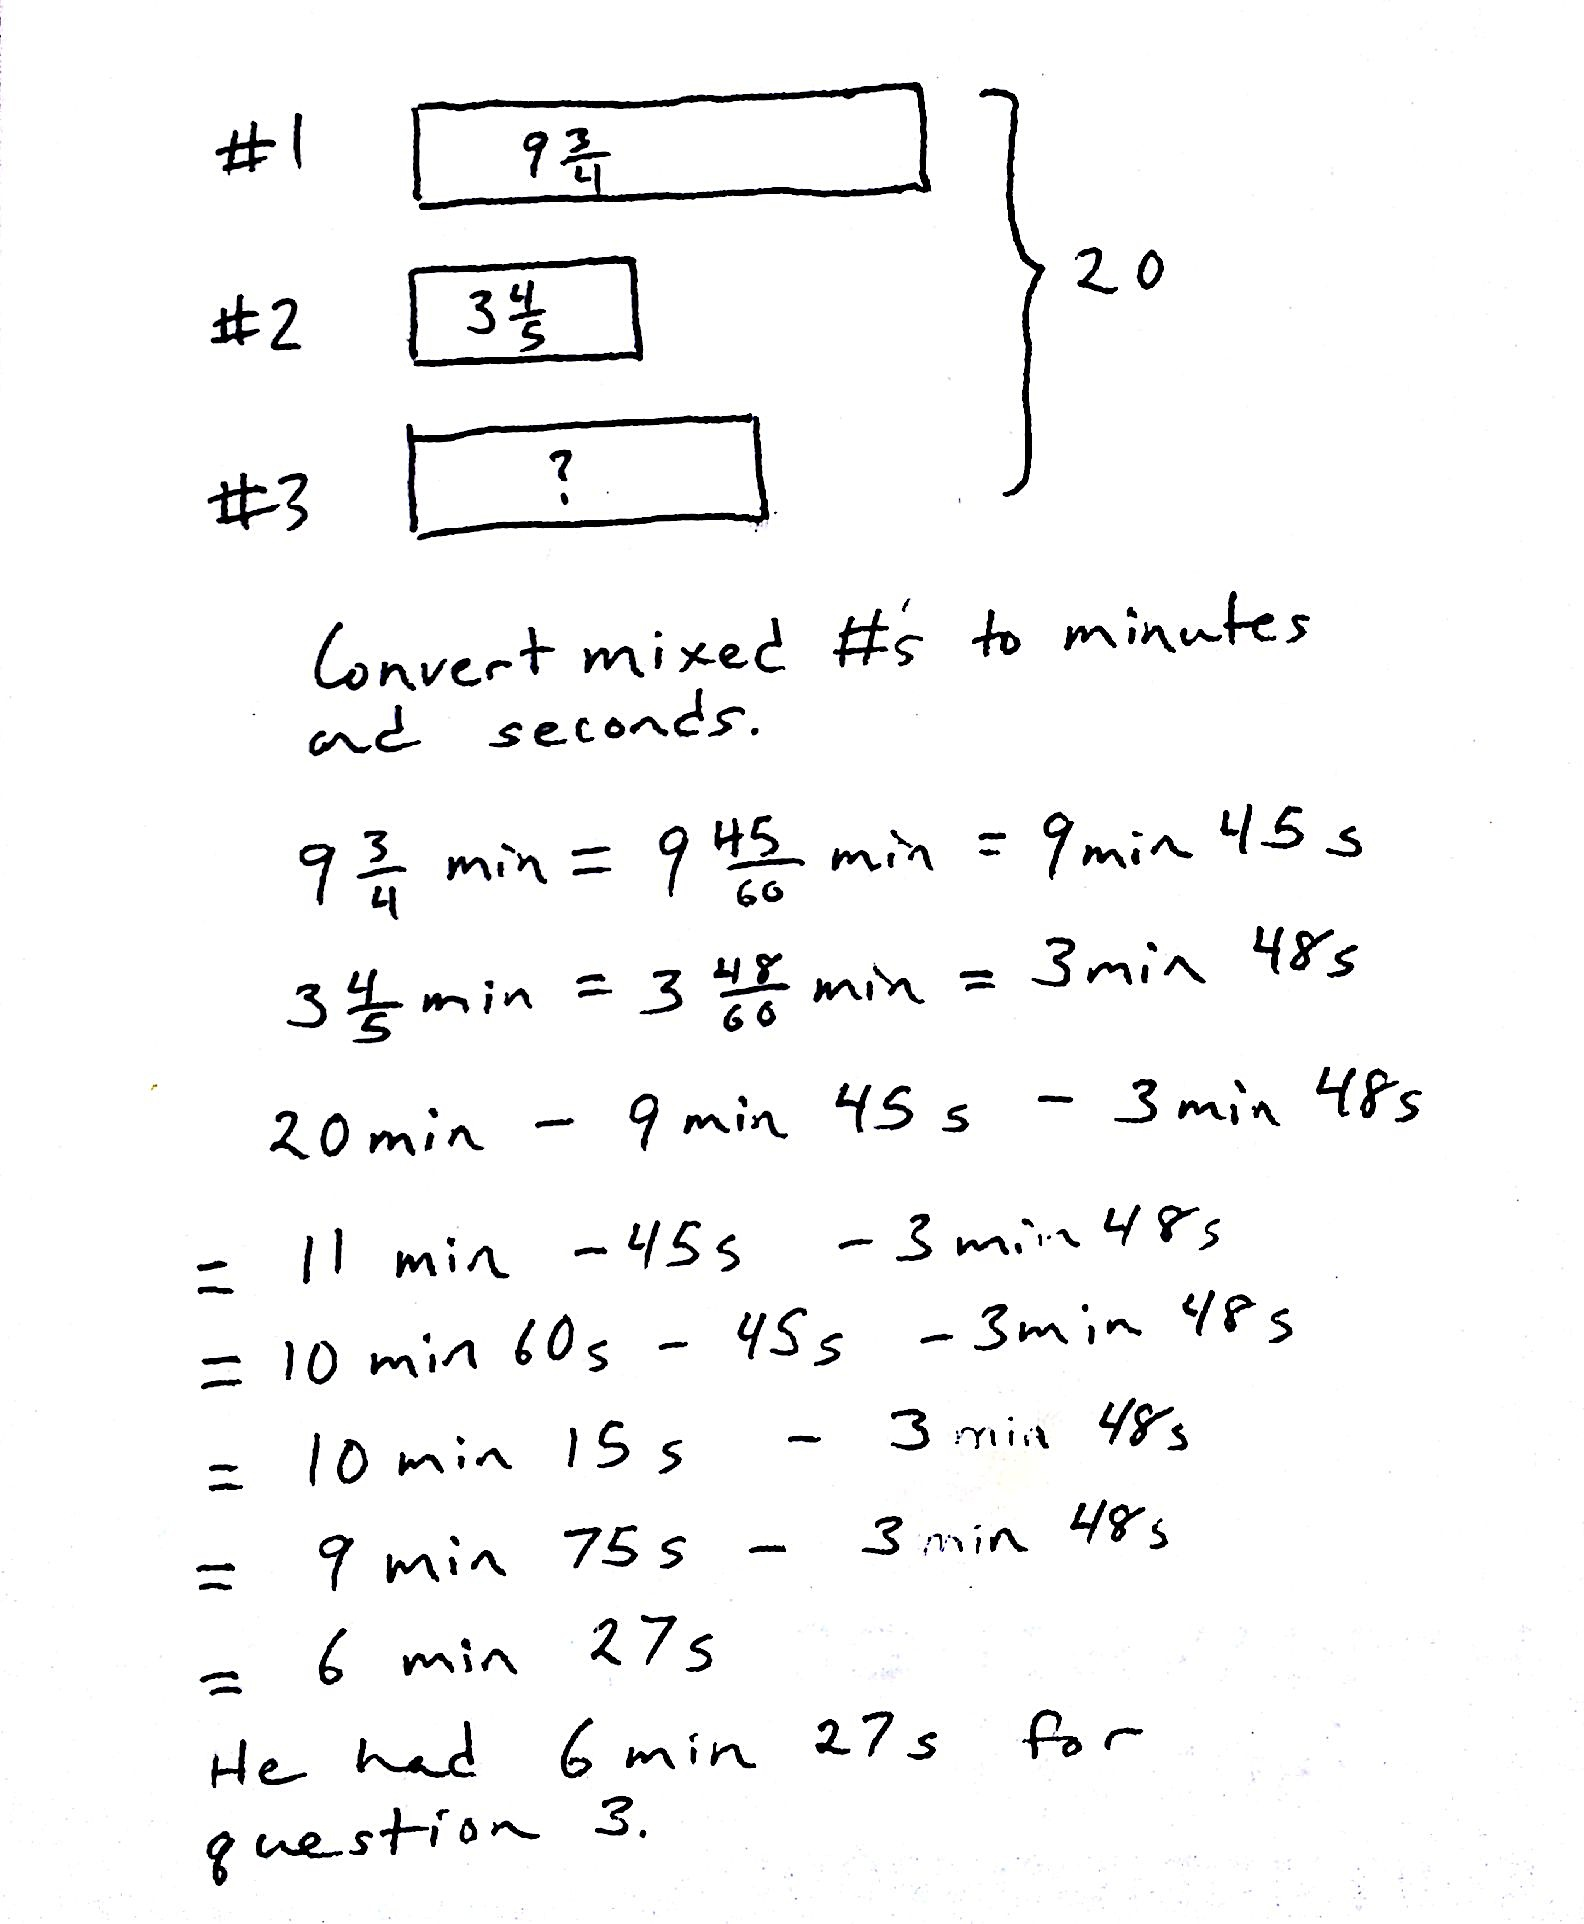 #1 9 3/4
20
#2 3 4/5
#3 ?
Convert mixed #'s to minutes
and seconds.
9 3/4 min = 9 45/60 min = 9 min 45 s
3 4/5 min = 3 48/60 min = 3 min 48s
20 min - 9 min 45 s - 3 min 48s
= 11 min - 45s - 3 min 48s
= 10 min 60s - 45s - 3 min 48s
= 10 min 15 s - 3 min 48s
= 9 min 75 s - 3 min 48s
= 6 min 27s
He had 6 min 27s for
question 3.